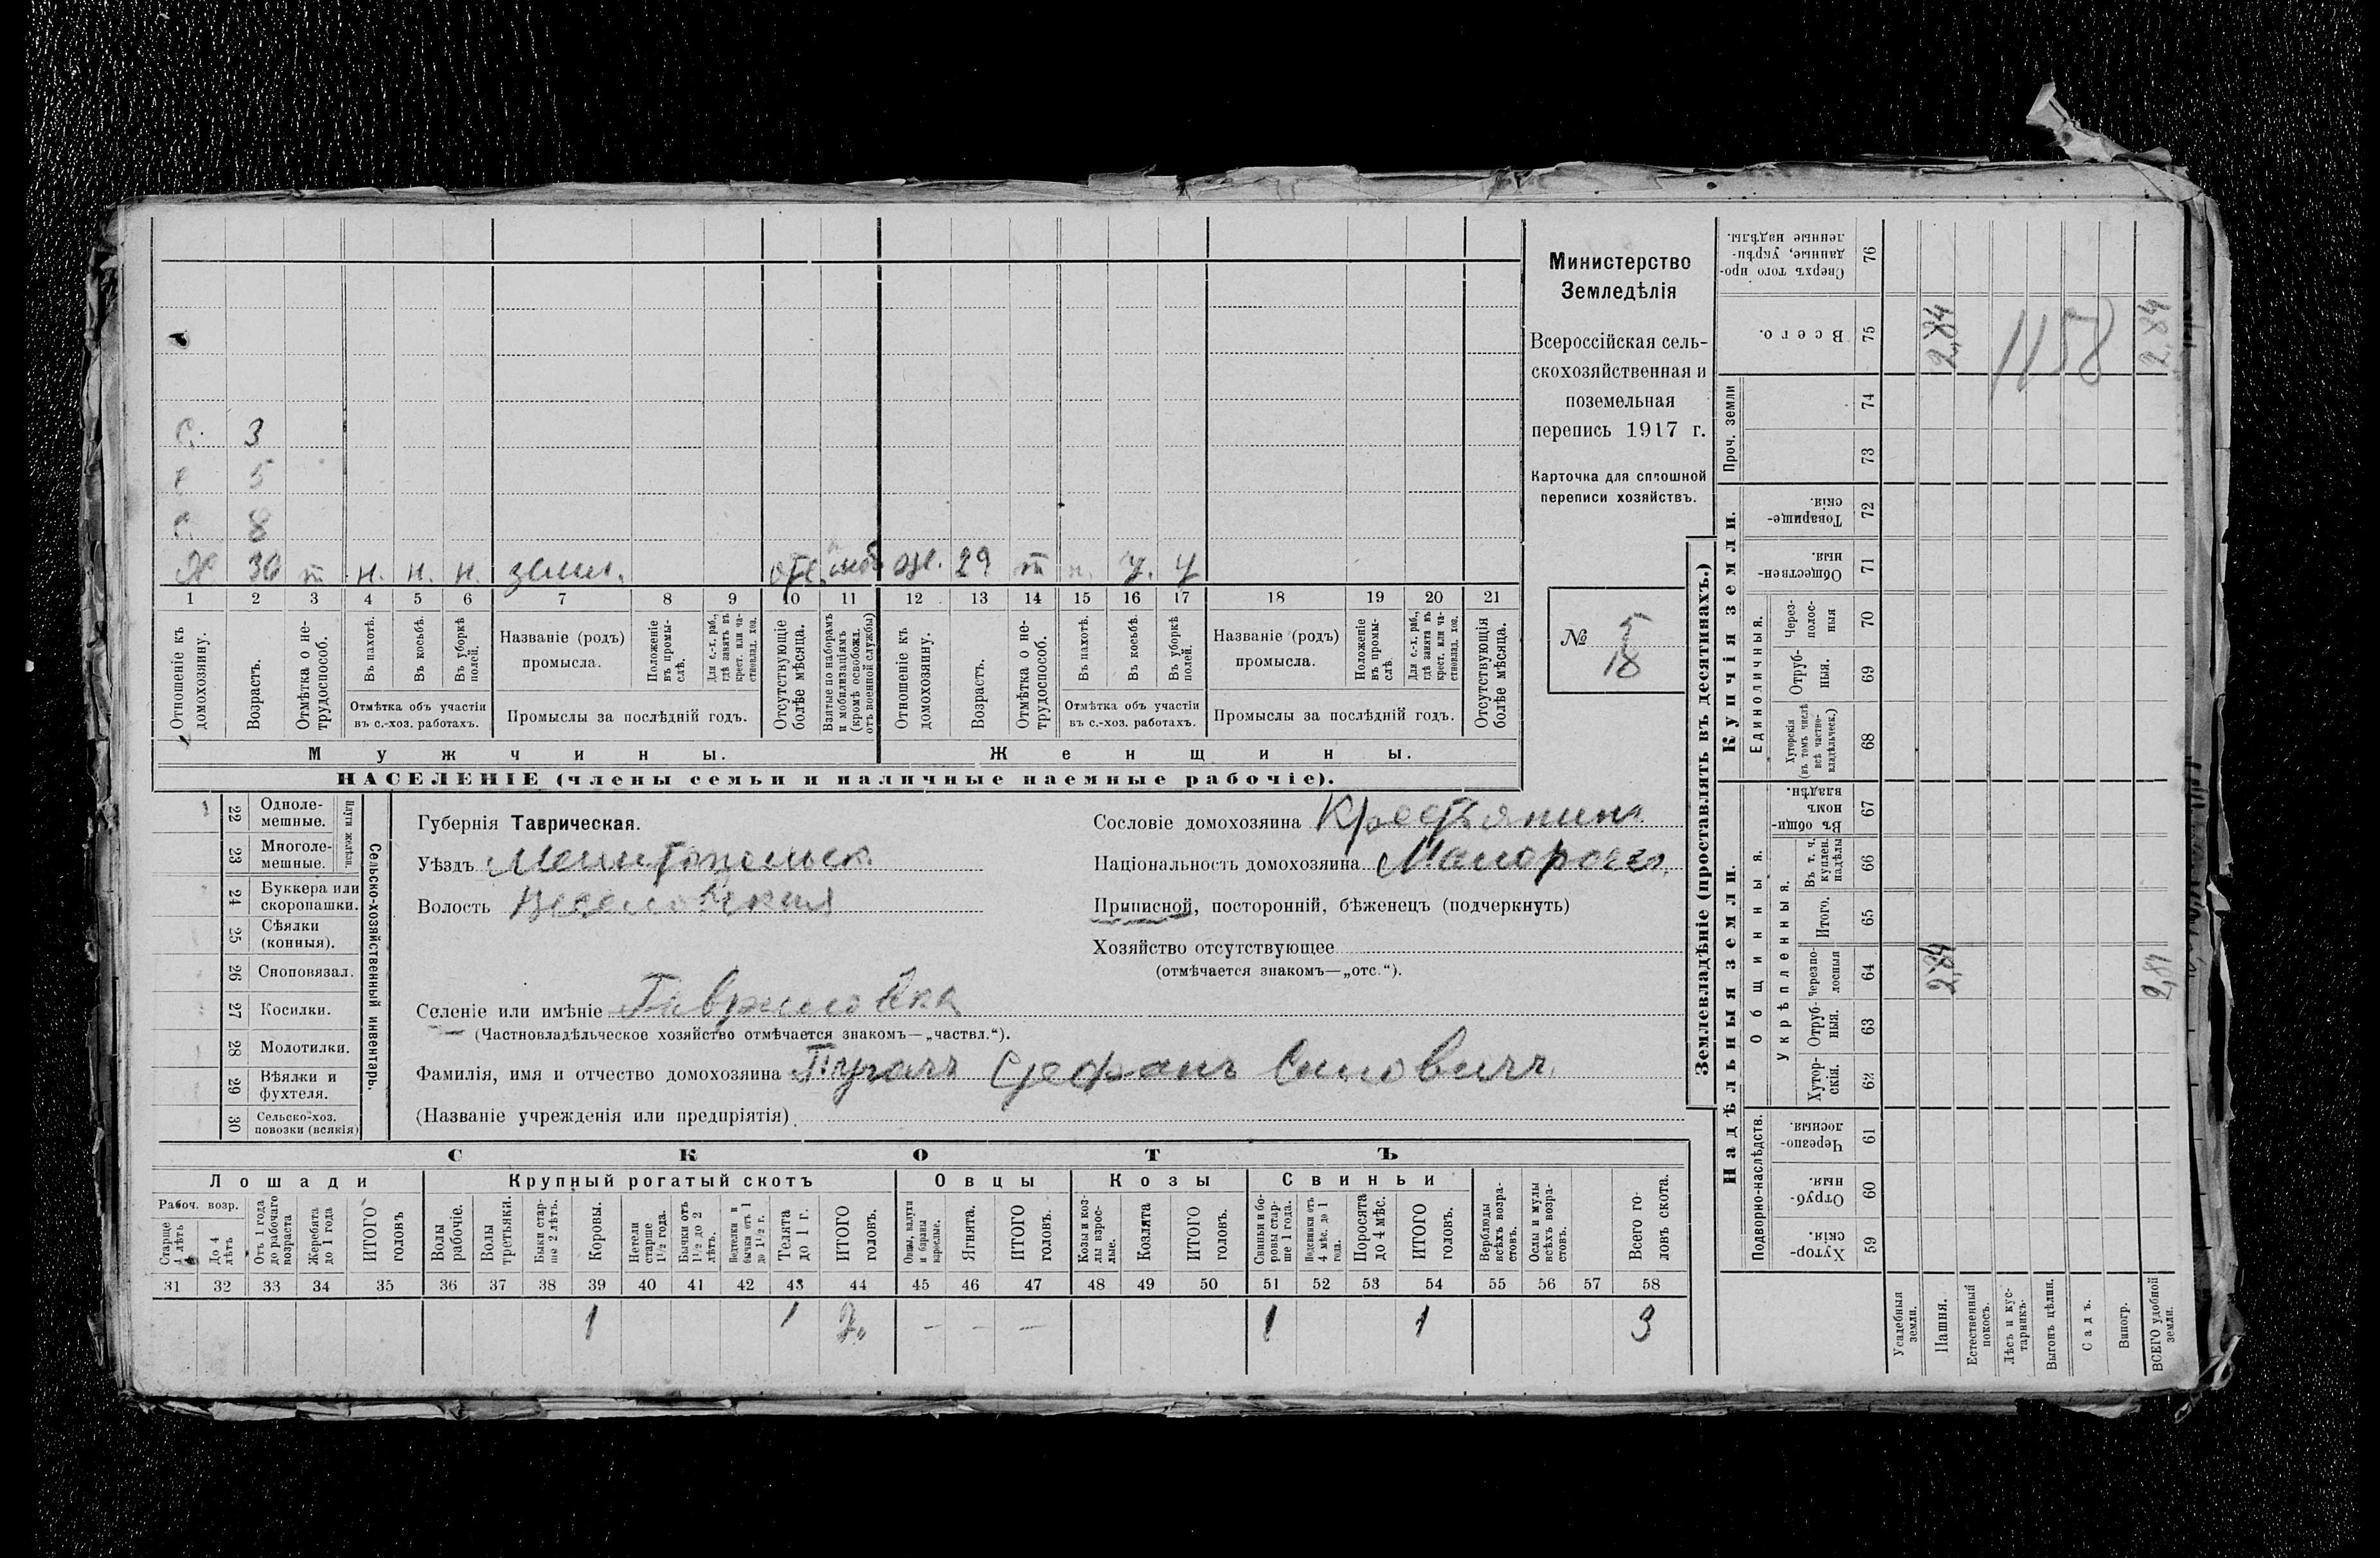 Министерство
Земледѣлія
Всероссійская сель-
скохозяйственная и
поземельная
перепись 1917 г.
Карточка для сплошной
переписи хозяйствъ.
№ 5
18
с. 3
с 5
с. 8
Х. 30 т н. н. н. земл. отс. моб. ж. 29 т н. у. у
1 2 3 4 5 6 7 8 9 10 11 12 13 14 15 16 17 18 19 20 21
Отношеніе къ домохозяину.
Возрастъ.
Отмѣтка о не-трудоспособ.
Въ пахотѣ.
Въ косьбѣ.
Въ уборкѣ полей.
Отмѣтка объ участіи
въ с.-хоз. работахъ.
Названіе (родъ)
промысла.
Положеніе въ промы-слѣ.
Для с.-х. раб., гдѣ занятъ въ крест. или ча-стновлад. хоз.
Промыслы за послѣдній годъ.
Отсутствующіе болѣе мѣсяца.
Взятые по наборамъ и мобилизаціямъ (кромѣ освобожд. отъ военной службы)
Отношеніе къ домохозяину.
Возрастъ.
Отмѣтка о не-трудоспособ.
Въ пахотѣ.
Въ косьбѣ.
Въ уборкѣ полей.
Отмѣтка объ участіи
въ с.-хоз. работахъ.
Названіе (родъ)
промысла.
Положеніе въ промы-слѣ.
Для с.-х. раб., гдѣ занята въ крест. или ча-стновлад. хоз.
Промыслы за послѣдній годъ.
Отсутствующія болѣе мѣсяца.
Мужчины. Женщины.
НАСЕЛЕНІЕ (члены семьи и наличные наемные рабочіе).
Сельско-хозяйственный инвентарь.
Плуги желѣзн.
22 Одноле-мешные.
23 Многоле-мешные.
24 Буккера или скоропашки.
25 Сѣялки (конныя).
26 Сноповязал.
27 Косилки.
28 Молотилки.
29 Вѣялки и фухтеля.
30 Сельско-хоз. повозки (всякія)
Губернія Таврическая.
Уѣздъ Мелитопольск.
Волость Веселовская
Сословіе домохозяина Крестьянинъ
Національность домохозяина Малоросс.
Приписной, посторонній, бѣженецъ (подчеркнуть)
Хозяйство отсутствующее
(отмѣчается знакомъ—„отс.“).
Селеніе или имѣніе Гавриловка
(Частновладѣльческое хозяйство отмѣчается знакомъ—„частвл.“).
Фамилія, имя и отчество домохозяина Пугачъ Стефанъ Силовичъ.
(Названіе учрежденія или предпріятія)
СКОТЪ
Лошади Крупный рогатый скотъ Овцы Козы Свиньи
Рабоч. возр.
Старше 4 лѣтъ
До 4 лѣтъ
Отъ 1 года до рабочаго возраста
Жеребята до 1 года
ИТОГО головъ
Волы рабочіе.
Волы третьяки.
Быки стар-ше 2 лѣтъ.
Коровы.
Нетели старше 1½ года.
Бычки отъ 1½ до 2 лѣтъ.
Подтелки и бычки отъ 1 до 1½ г.
Телята до 1 г.
ИТОГО головъ.
Овцы, валухи и бараны взрослые.
Ягнята.
ИТОГО головъ.
Козы и коз-лы взрос-лые.
Козлята
ИТОГО головъ.
Свиньи и бо-ровы стар-ше 1 года.
Подсвинки отъ 4 мѣс. до 1 года.
Поросята до 4 мѣс.
ИТОГО головъ.
Верблюды всѣхъ возра-стовъ.
Ослы и мулы всѣхъ возра-стовъ.
Всего го-ловъ скота.
31 32 33 34 35 36 37 38 39 40 41 42 43 44 45 46 47 48 49 50 51 52 53 54 55 56 57 58
1 1 2. – – – 1 1 3
Землевладѣніе (проставлять въ десятинахъ.)
Надѣльныя земли. Купчія земли.
Проч. земли
Подворно-наслѣдств.
Общинныя.
Укрѣпленныя.
Единоличныя.
Сверхъ того про-данные, укрѣп-ленные надѣлы. 76
Всего. 75
74
73
Товарище-скія. 72
Обществен-ныя. 71
Через-полос-ныя 70
Отруб-ныя. 69
Хуторскія (въ томъ числѣ всѣ частно-владѣльческ.) 68
Въ общи-номъ владѣн. 67
Въ т. ч. куплен. надѣлы 66
Итого. 65
Черезпо-лосныя 64
Отруб-ныя. 63
Хутор-скія. 62
Черезпо-лосныя. 61
Отруб-ныя. 60
Хутор-скія. 59
2,84 1158 2,84
2,84 2,84
Усадебныя земли.
Пашня.
Естественный покосъ.
Лѣсъ и кус-тарникъ.
Выгонъ цѣлин.
Садъ.
Виногр.
ВСЕГО удобной земли.